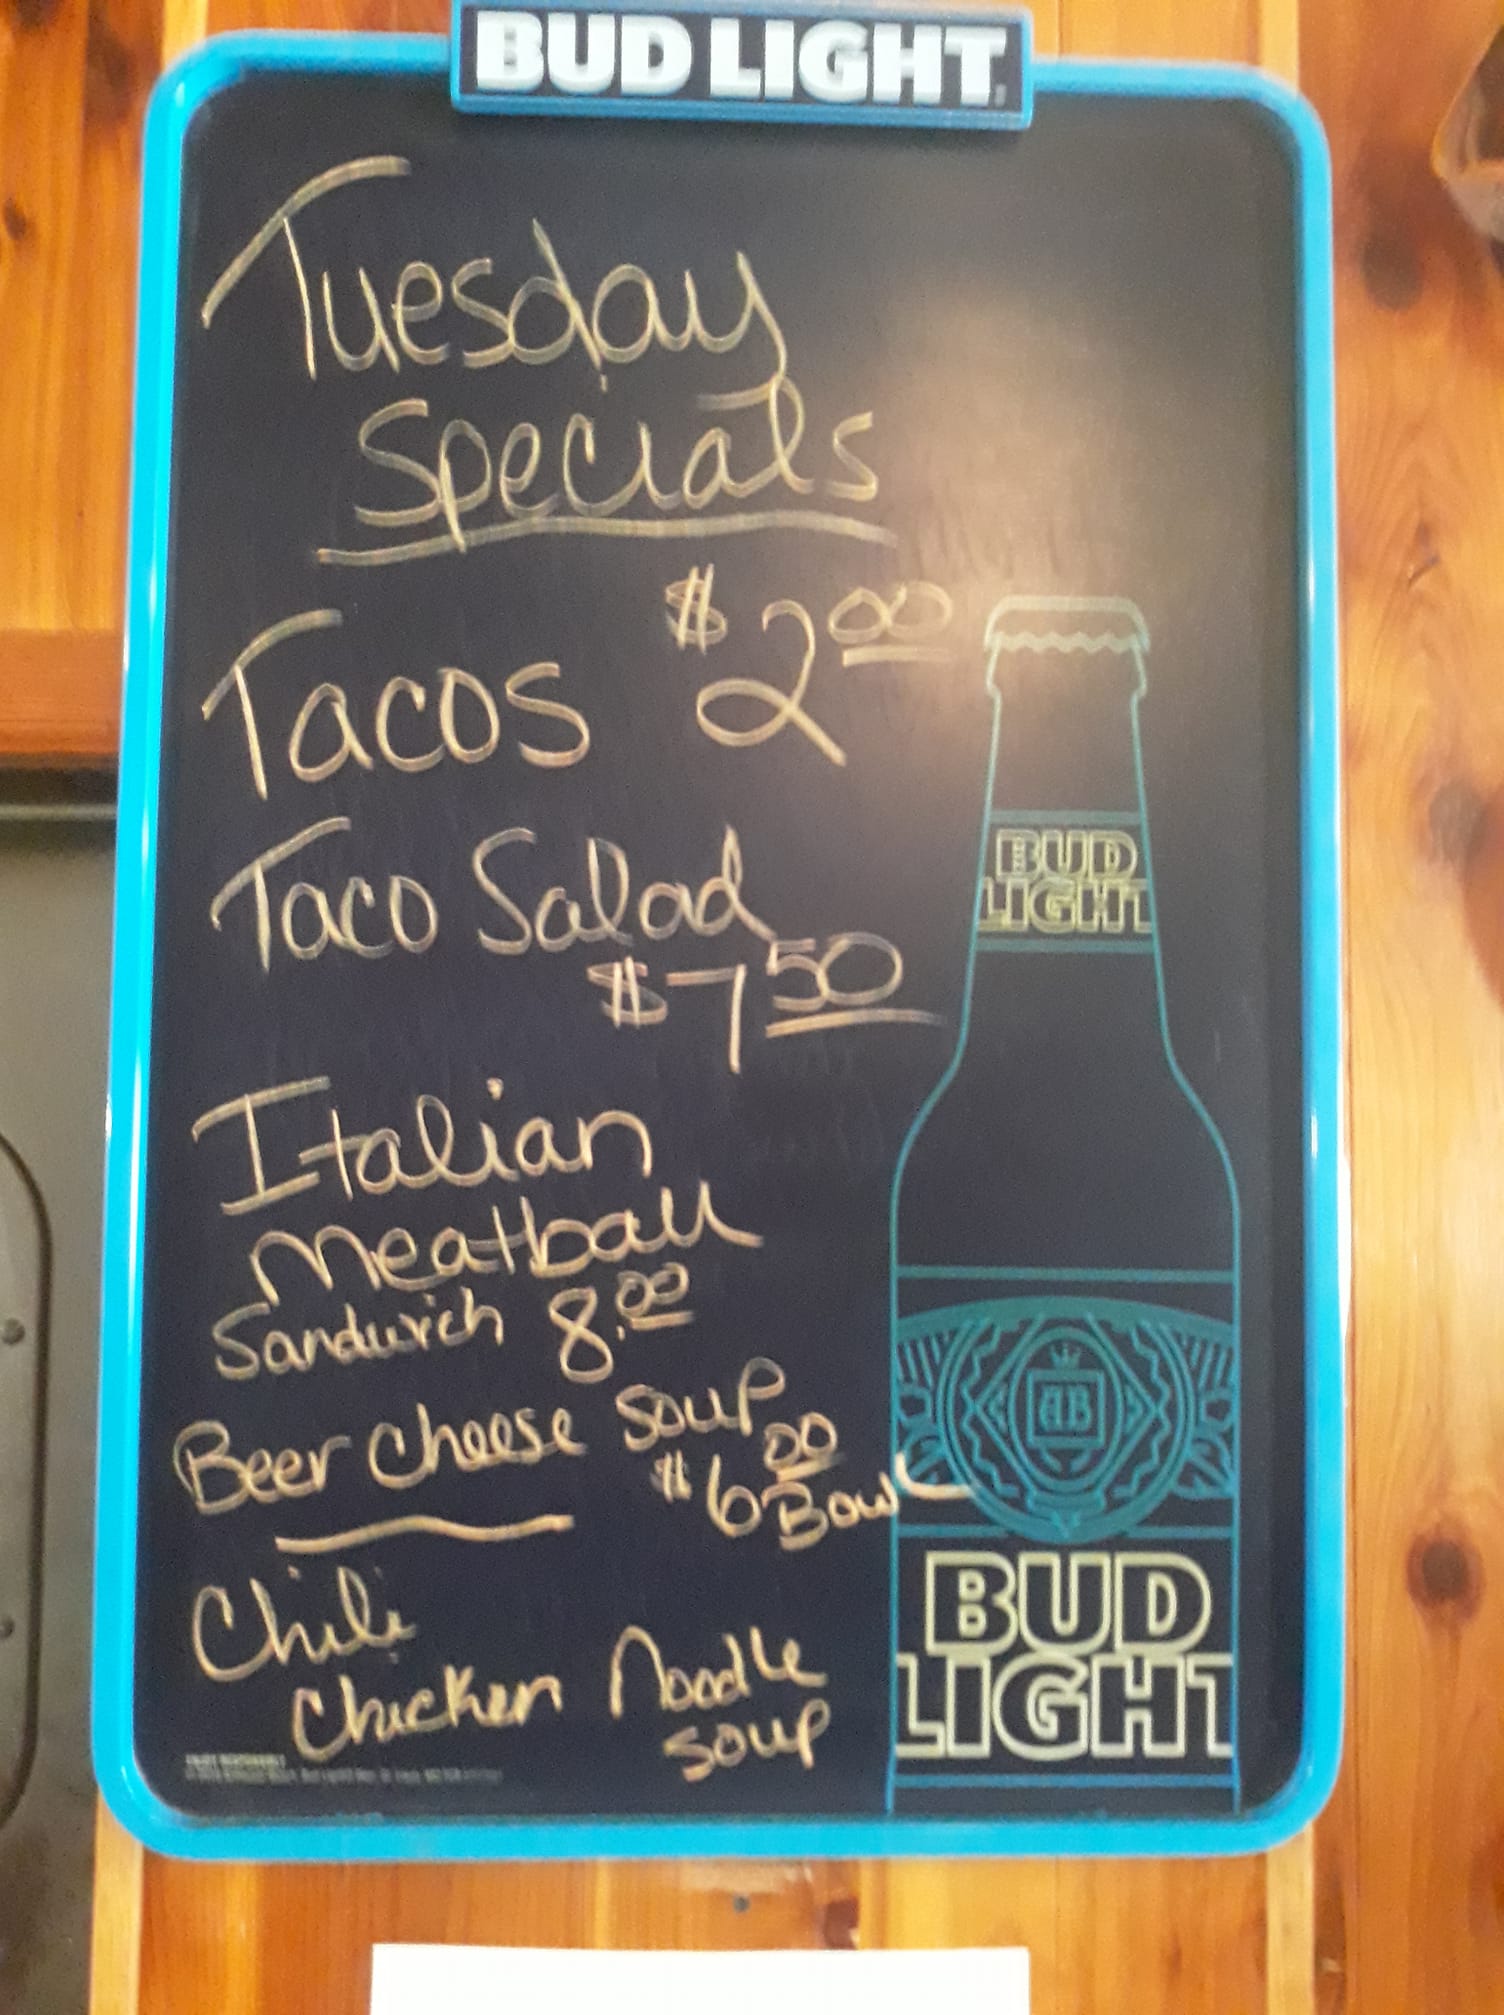 BUD LIGHT
Tuesday
Specials
Tacos $2.00
Taco Salad
$7.50
Italian
Meatball
Sandwich 8.00
Beer Cheese Soup
$6.00 Bowl
Chili
Chicken Noodle
Soup
BUD
LIGHT
AB
BUD
LIGHT
ENJOY RESPONSIBLY